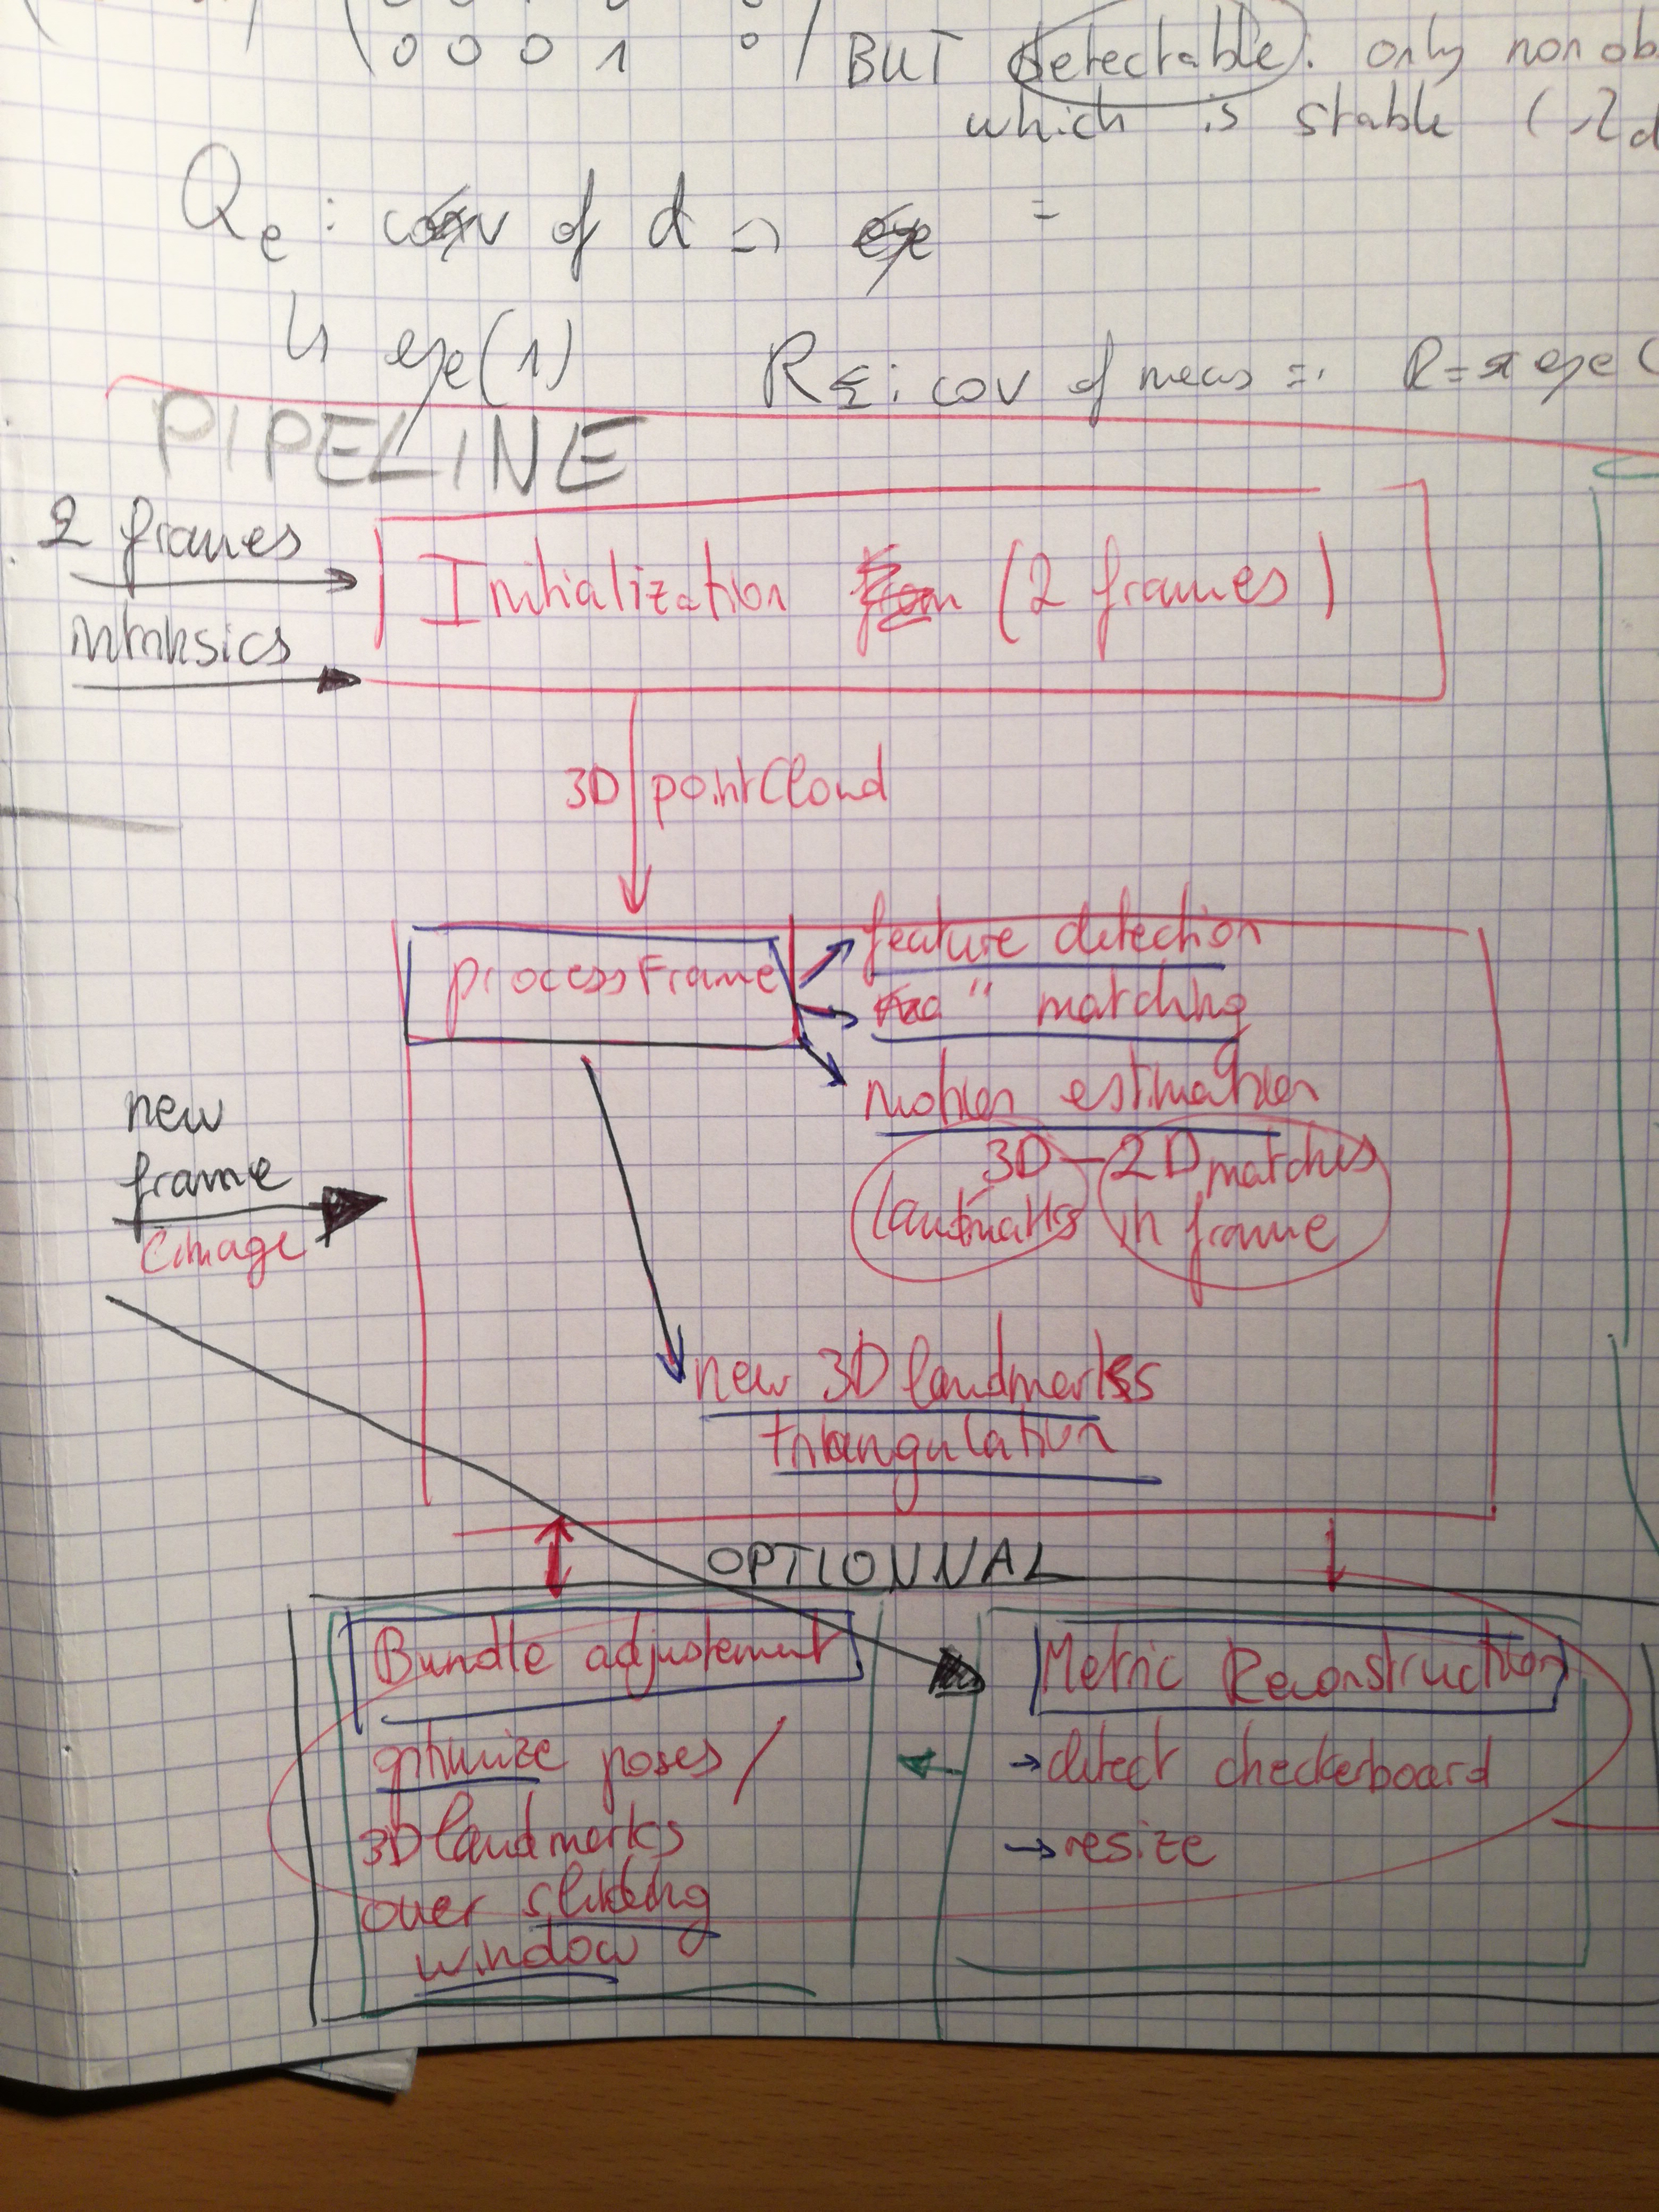 0 0 0 1 0
BUT detectable: only non ob
which is stable (λd
Qe : cov of d =
↳ eye(1)
R : cov of meas = R = eye (
PIPELINE
2 frames
Initialization (2 frames)
intrinsics
3D pointCloud
processFrame
feature detection
" matching
motion estimation
3D - 2D matches
landmarks in frame
new
frame
image
new 3D landmarks
triangulation
OPTIONNAL
Bundle adjustement
optimize poses /
3D landmarks
over sliding
window
Metric Reconstruction
→ detect checkerboard
→ resize